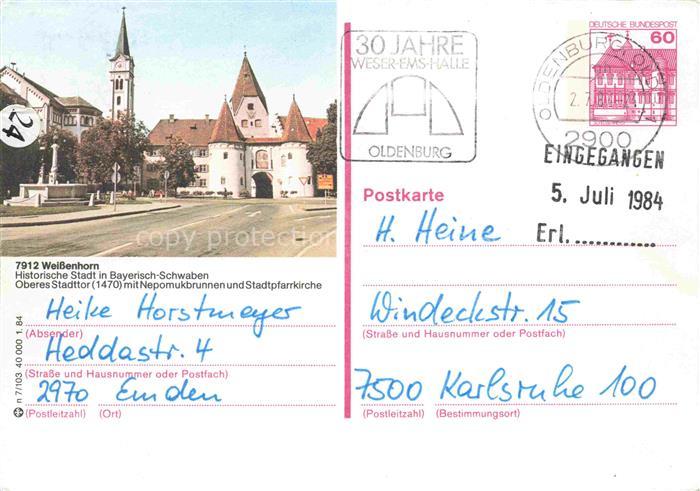 24
copy protection
7912 Weißenhorn
Historische Stadt in Bayerisch-Schwaben
Oberes Stadttor (1470) mit Nepomukbrunnen und Stadtpfarrkirche
Heike Horstmeyer
(Absender)
Heddastr. 4
(Straße und Hausnummer oder Postfach)
2970 Emden
(Postleitzahl) (Ort)
n 7/103 40 000 1. 84
30 JAHRE
WESER-EMS-HALLE
OLDENBURG
DEUTSCHE BUNDESPOST
60
OLDENBURG, OLDB
2900
EINGEGANGEN
5. Juli 1984
Erl.............
Postkarte
H. Heine
Windeckstr. 15
(Straße und Hausnummer oder Postfach)
7500 Karlsruhe 100
(Postleitzahl) (Bestimmungsort)